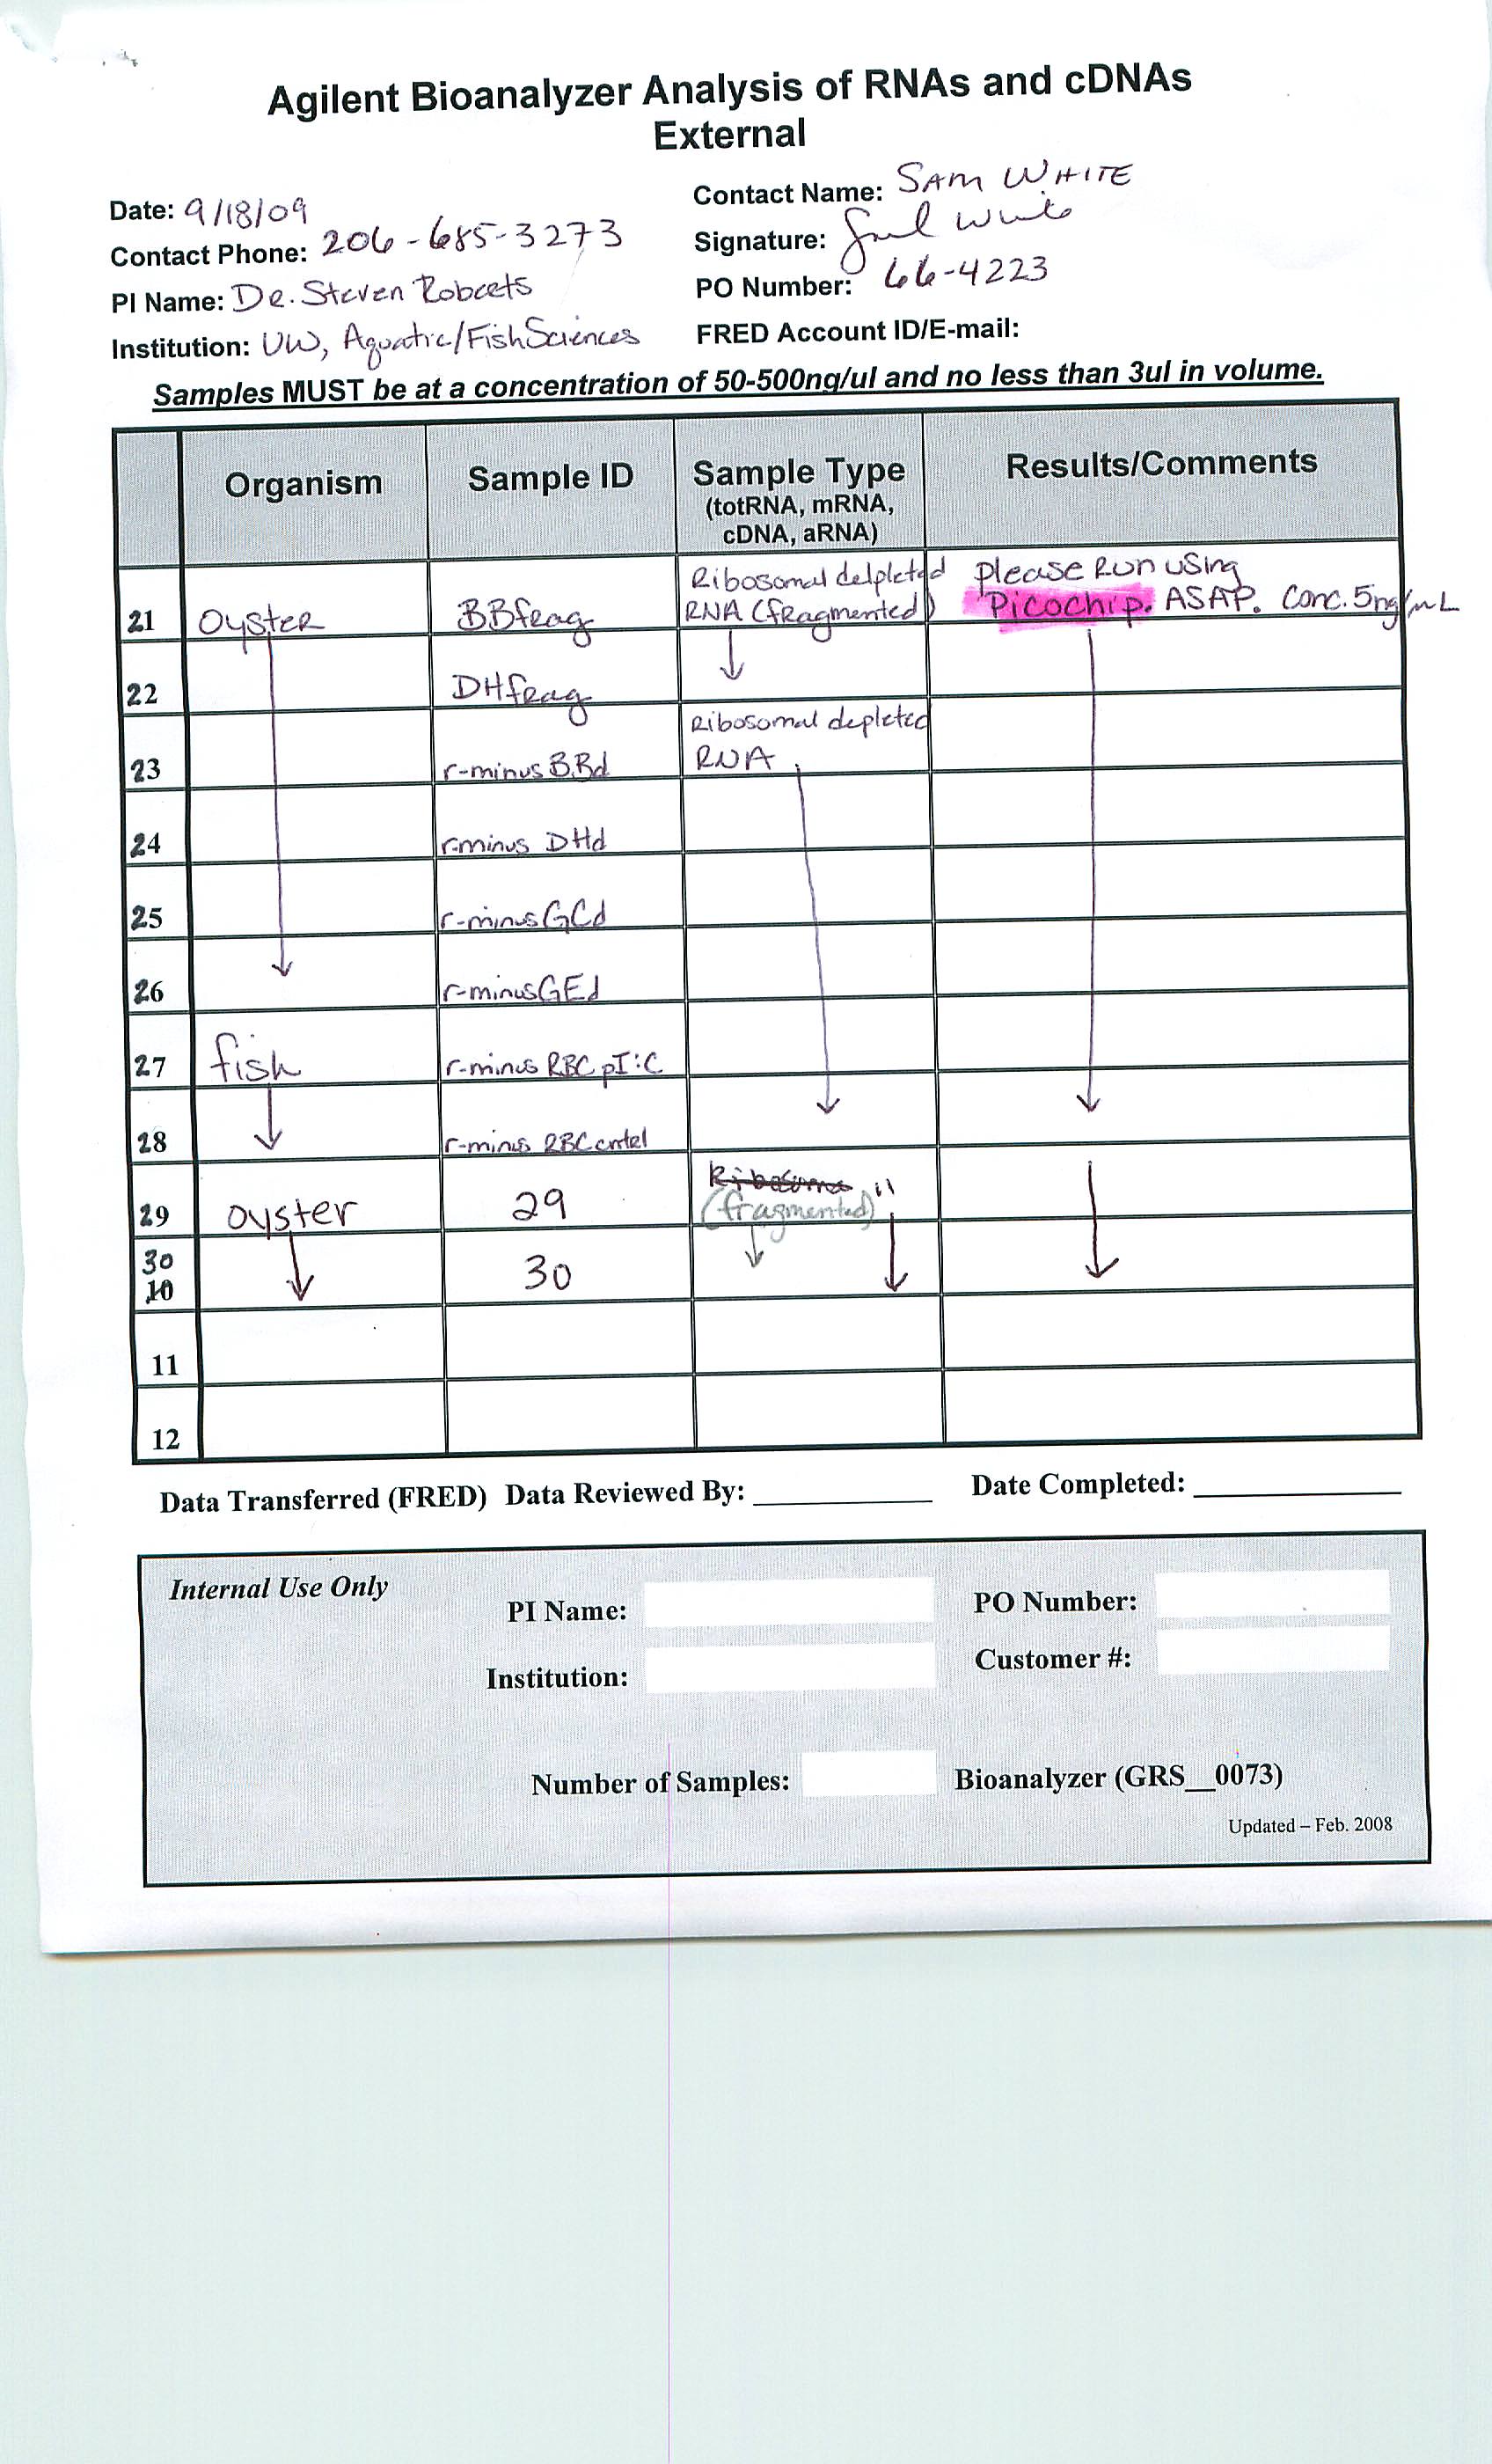 Agilent Bioanalyzer Analysis of RNAs and cDNAs
External
Date: 9/18/09
Contact Name: SAM WHITE
Contact Phone: 206-685-3273
Signature: Sam White
PI Name: Dr. Steven Roberts
PO Number: 66-4223
Institution: UW, Aquatic/Fish Sciences
FRED Account ID/E-mail:
Samples MUST be at a concentration of 50-500ng/ul and no less than 3ul in volume.
Organism Sample ID Sample Type Results/Comments
(totRNA, mRNA,
cDNA, aRNA)
Ribosomal delpleted please Run using
21 Oyster BBfrag RNA (fragmented) Picochip. ASAP. Conc. 5ng/mL
22 DHfrag
Ribosomal depleted
23 r-minus BBd RNA
24 r-minus DHd
25 r-minus GCd
26 r-minus GEd
27 fish r-minus RBC pI:C
28 r-minus RBC cntrl
Ribosoma "
29 oyster 29 (fragmented)
30
10 30
11
12
Data Transferred (FRED) Data Reviewed By: ____ Date Completed: ____
Internal Use Only
PI Name: PO Number:
Institution: Customer #:
Number of Samples: Bioanalyzer (GRS__0073)
Updated – Feb. 2008